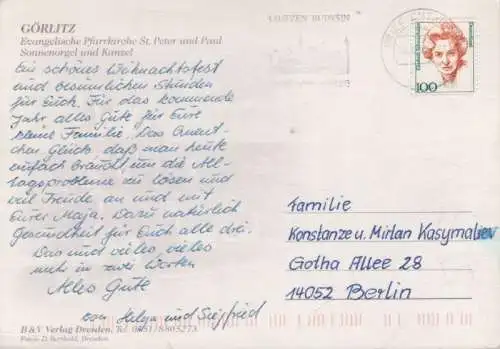 GÖRLITZ
Evangelische Pfarrkirche St. Peter und Paul
Sonnenorgel und Kanzel
Ein schönes Weihnachtsfest
und besinnlichen Stunden
für Euch. Für das kommende
Jahr alles Gute für Eure
kleine Familie. Das Quent-
chen Glück, daß man heute
einfach braucht, um die All-
tagsprobleme zu lösen und
viel Freude an und mit
Eurer Maja. Dazu natürlich
Gesundheit für Euch alle drei.
Das und vieles, vieles
mehr in zwei Worten
Alles Gute
von Helga und Siegfried
B&V Verlag Dresden, Tel. 0351/8805273
Fotos: D. Berthold, Dresden
BAUTZEN BUDYŠIN
100
Familie
Konstanze u. Mirlan Kasymaliev
Gotha Allee 28
14052 Berlin